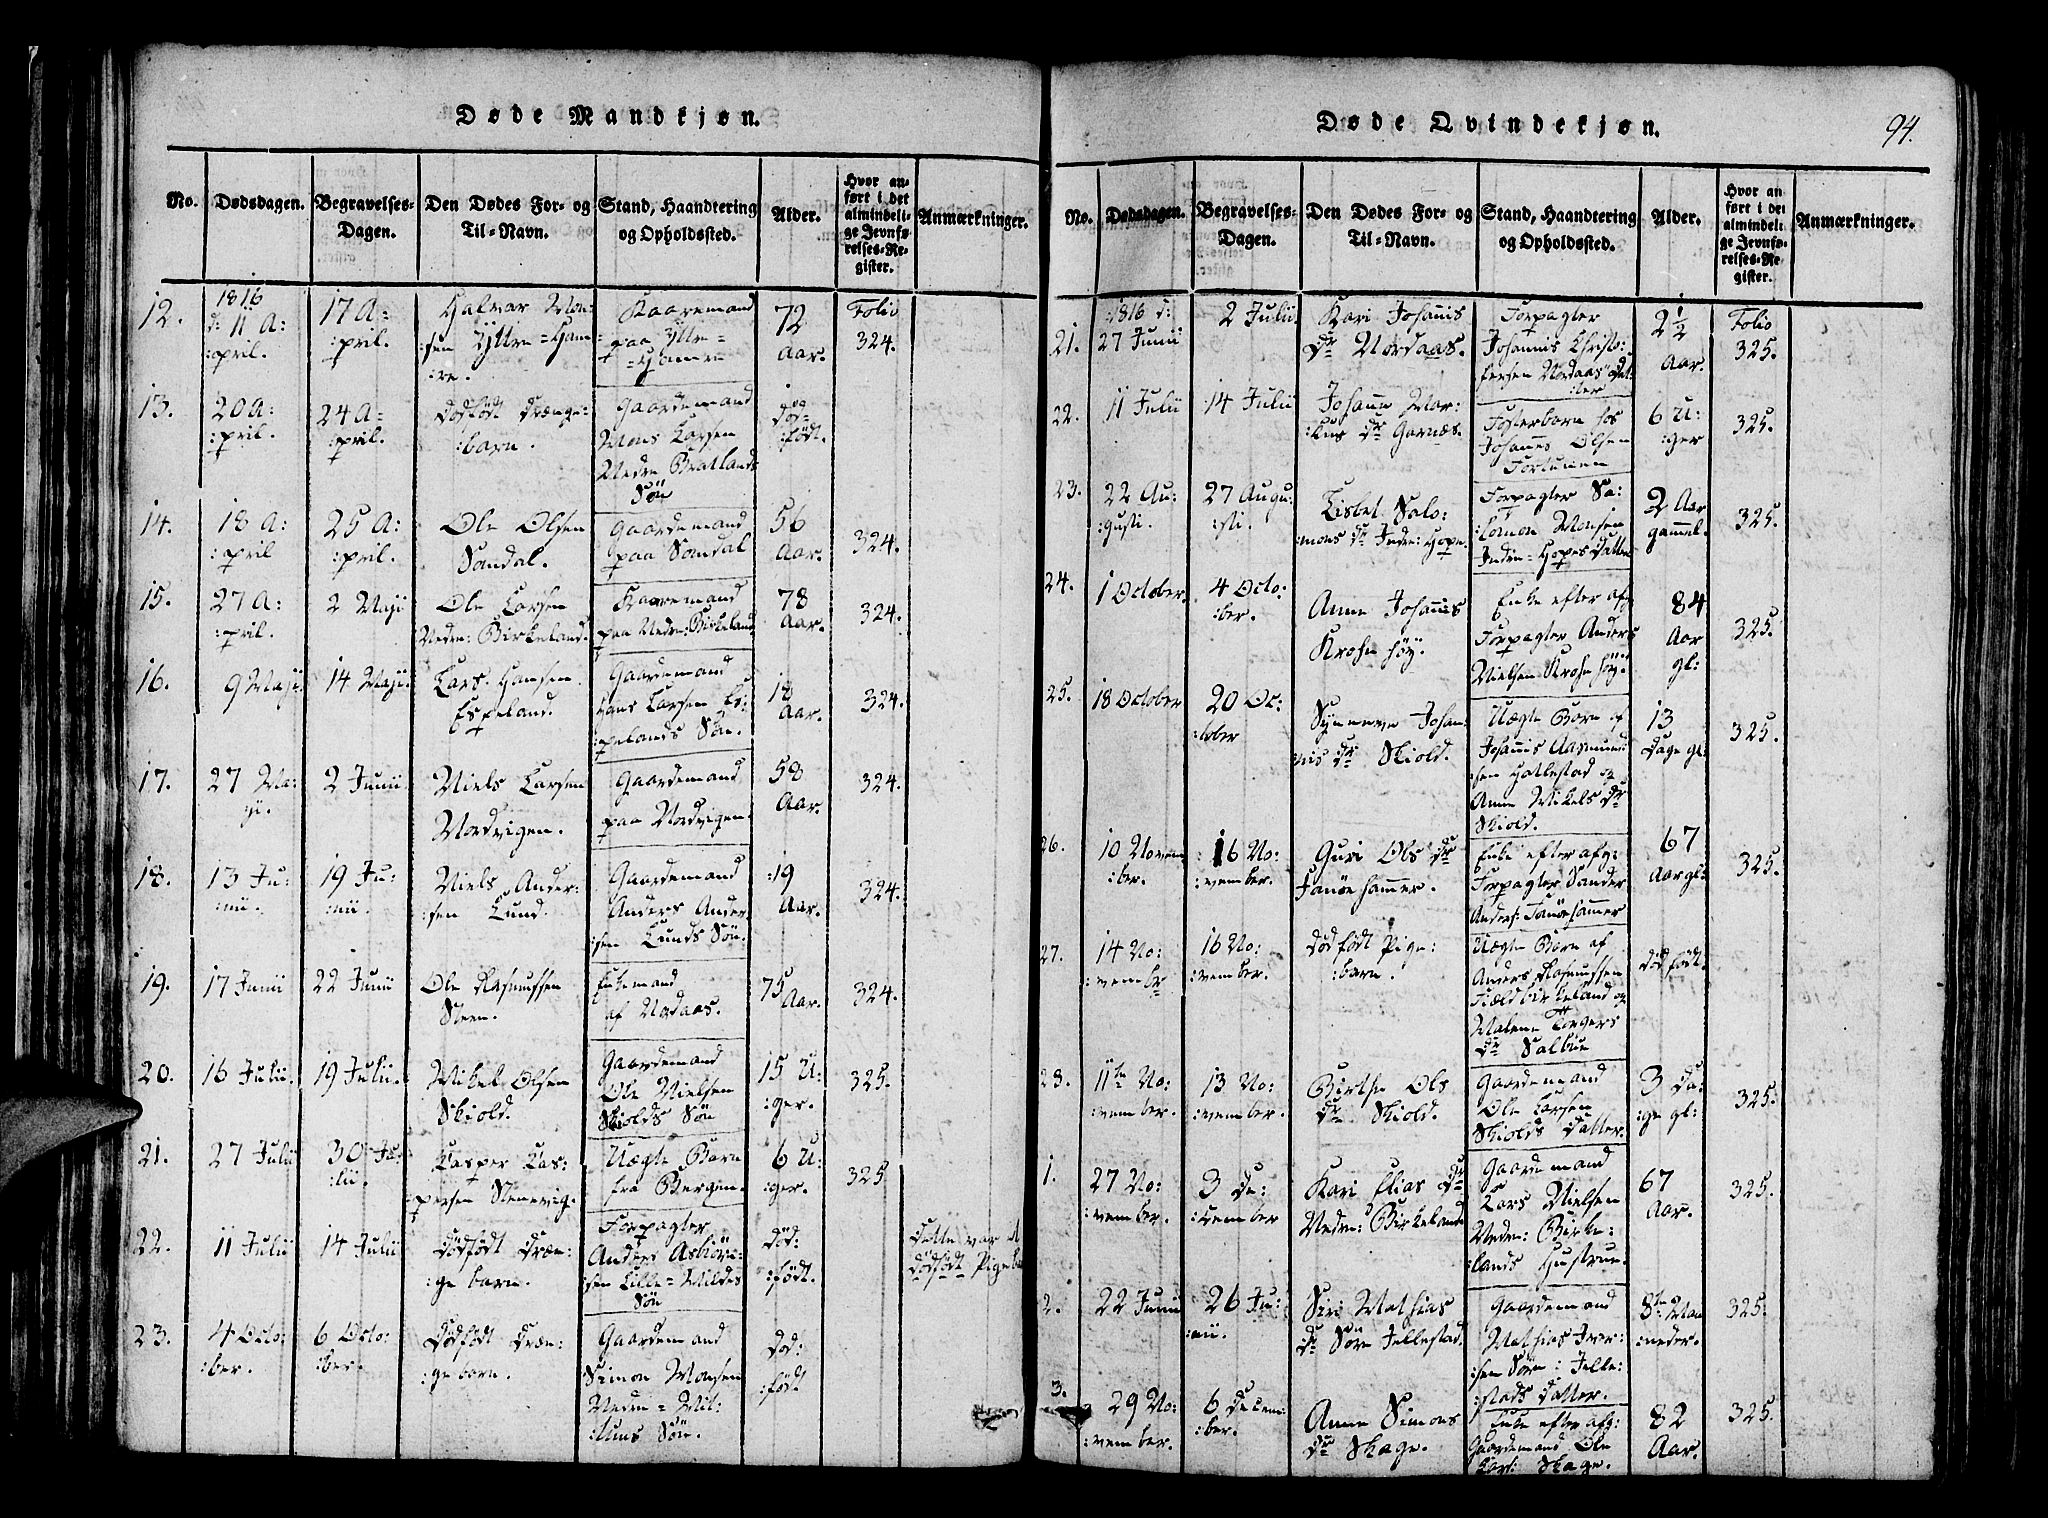 Døde Mandkjøn.
No.
Dødsdagen.
Begravelses-
Dagen.
Den Dødes For- og
Til-Navn.
Stand, Haandtering
og Opholdssted.
Alder.
Hvor an-
ført i det
almindeli-
ge Jevnfø-
relses-Re-
gister.
Anmærkninger.
12.
1816
d: 11 A:
:pril.
17 A:
:pril.
Halvor Mon:
:sen Yttre=Ham=
:re.
Kaaremand
paa Yttre=
=Hamre
72
Aar.
Folio
324.
13.
20 A:
:pril.
24 A:
:pril.
Dødfødt Drænge:
:barn.
Gaardemand
Mons Larsen
Neden Bratlands
Søn
død:
:født.
14.
18 A:
:pril
25 A:
:pril.
Ole Olsen
Sandal.
Gaardemand
paa Sandal
56
Aar.
324.
15.
27 A:
:pril.
2 Maji
Ole Larsen
Neden: Birkeland.
Kaaremand
paa Neden: Birkeland
78
Aar.
324.
16.
9 Maji
14 Maji.
Lars Hansen
Espeland.
Gaardemand
Hans Larsen Es:
:pelands Søn.
18
Aar.
324.
17.
27 Ma:
ji.
2 Junii
Niels Larsen
Nordvigen.
Gaardemand
paa Nordvigen.
58
Aar.
324.
18.
13 Ju:
:nii.
19 Ju:
:nii.
Niels Ander:
:sen Lund.
Gaardemand
Anders Ander
:sen Lunds Søn.
:19
Aar.
324.
19.
17 Junii
22 Junii
Ole Rasmussen
Steen.
Enkemand
af Nordaas.
75
Aar.
324.
20.
16 Julii.
19 Julii.
Mikel Olsen
Skiold.
Gaardemand
Ole Nielsen
Skiolds Søn
15 U:
ger.
325.
21.
27 Julii
30 Ju:
:lii.
Casper Cas:
persen Stenevig.
Uægte Barn
fra Bergen.
6 U:
:ger.
325
22.
11 Julii
14 Julii
Dødfødt Dræn:
:ge barn.
Forpagter
Anders Asbiörn:
:sen Lille=Mildes
Søn
død:
:født.
Dette var et
dødfødt Pige
23.
4 Octo:
:ber.
6 Octo:
:ber.
Dødfødt Dræn:
:ge barn.
Gaardemand
Simon Monsen
Neden=Mil:
Søn.
død:
:født
Døde Qvindekjøn.
94.
No.
Dødsdagen.
Begravelses-
Dagen.
Den Dødes For- og
Til-Navn.
Stand, Haandtering
og Opholdssted.
Alder.
Hvor an
ført i det
almindeli-
ge Jevnfø-
relses-Re-
gister.
Anmærkninger.
21.
:1816 d:
27 Junii
2 Julii.
Kari Johanis
Dr Nordaas.
Forpagter
Johannis Christo:
fersen Nordaas Dat:
:ter
2½
Aar.
Folio
325.
22.
11 Julii
14 Julii
Johanne Mar:
Dr Garnæs.
Fosterbarn hos
Johannes Olsen
Fortunen
6 U:
:ger
325.
23.
22 Au:
:gusti.
27 Augu:
:sti.
Lisbet Salo:
:mons Dr Inden: Hope.
Forpagter Sa:
:lomon Monsen
Inden=Hopes Datter
2 Aar
gammel.
325.
24.
1 October.
4 Octo:
:ber.
Anne Johanis
Krohnhöy.
Enke efter afg:
Forpagter Anders
Nielsen Krohnhöy
84
Aar
gl:
325.
25.
18 October
20 Oc:
:tober
Synneve Johan:
:nis Dr Skiold.
Uægte Barn af
Johannis Aasmund:
:sen Hatlestad og
Anne Mikels Dr
Skiold.
13
Dage gl:
325.
26.
10 Novem
:ber.
16 No:
:vember.
Guri Ols Dr
Fanöehammer.
Enke efter afg:
Forpagter Sander
Anders: Fanöehammer
67
Aar gl:
325.
27.
14 No:
:vembr
16 No:
:vember.
Dödfödt Pige:
:barn.
Uægte Barn af
Anders Rasmussen
Fieldbirkeland og
Malene Torgers
Dr Salbue
dødfødt.
28.
11te No:
:vember.
13 No:
:vember.
Birthe Ols
Dr Skiold.
Gaardemand
Ole Larsen
Skiolds Datter.
3 Da:
:ge gl:
325.
1.
27 No:
:vember.
3 De:
:cember
Kari Elias Dr
Neden: Birkeland
Gaardemand
Lars Nielsen
Neden: Birke:
:lands Hustrue.
67
Aar.
325.
2.
22 Junii
26 Ju:
:nii.
Siri Mathias
Dr Sörn Jellestad.
Gaardemand
Mathias Iver:
:sen Sörn: Jelle:
:stads Datter.
8te Maa
:neder.
325.
3.
29 No:
:vember.
6 Decem:
:ber.
Anne Simons
Dr Skage.
Enke efter afg:
Gaardemand Ole
Lars: Skage.
82
Aar.
325.